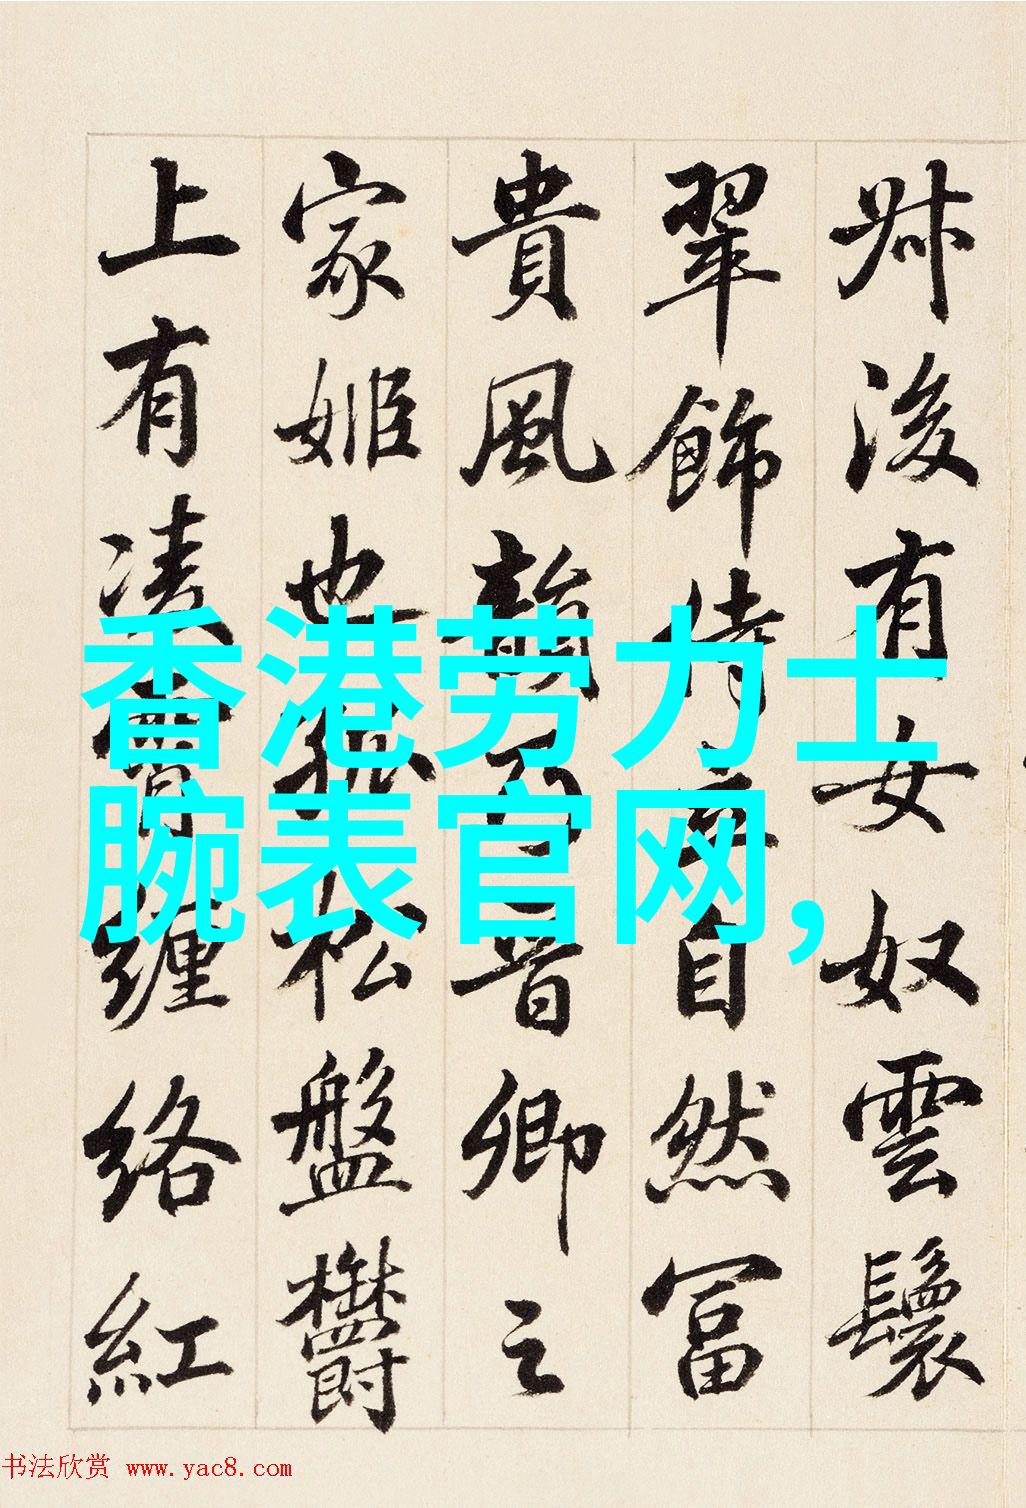 牀後有女奴雲鬟
翠飾侍立自然富
貴風韻乃晉卿之
家姬也孤松盤欝
上有凌霄纏絡紅
香港劳力士
腕表官网,
书法欣赏 www.yac8.com